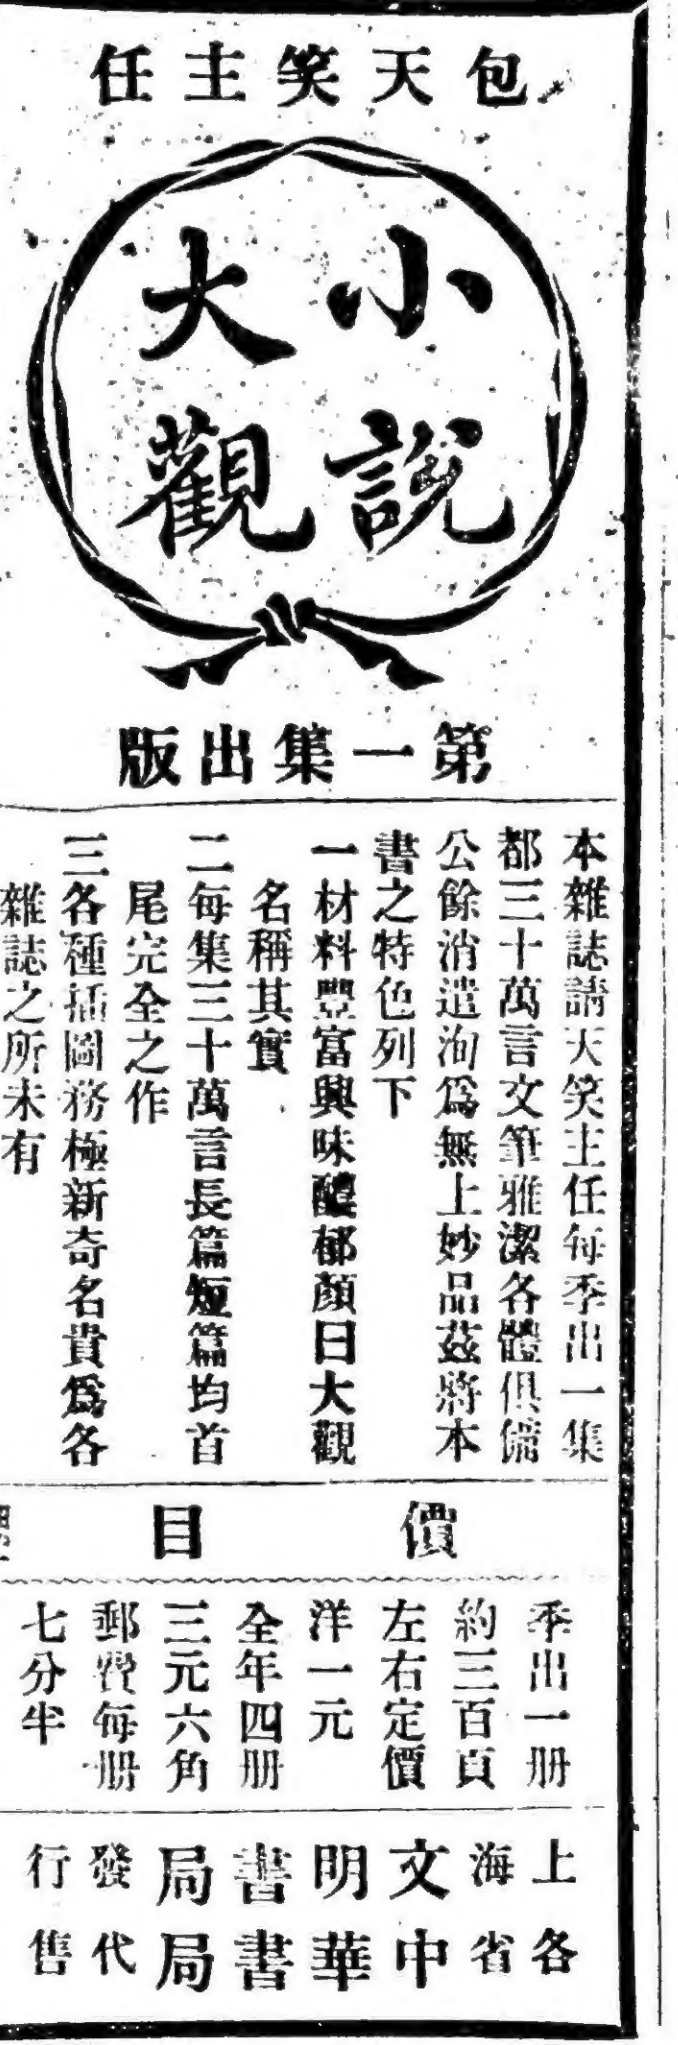 包天笑主任
小說
大觀
第一集出版
本雜誌請天笑主任每季出一集
都三十萬言文筆雅潔各體俱備
公餘消遣洵爲無上妙品茲將本
書之特色列下
一材料豐富興味醲郁顏曰大觀
名稱其實
二每集三十萬言長篇短篇均首
尾完全之作
三各種插圖務極新奇名貴爲各
雜誌之所未有
價目
季出一册
約三百頁
左右定價
洋一元
全年四册
三元六角
郵費每册
七分半
上海文明書局發行
各省中華書局代售